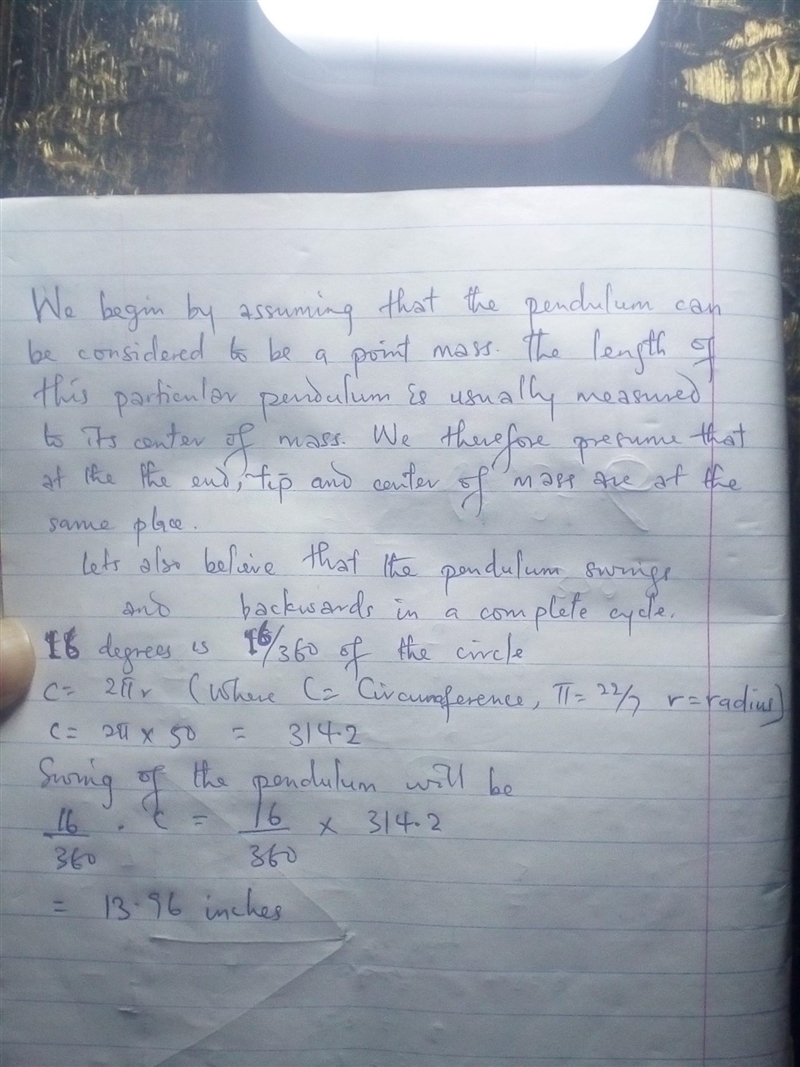 We begin by assuming that the pendulum can
be considered to be a point mass. The length of
this particular pendulum is usually measured
to its center of mass. We therefore presume that
at the the end, tip and center of mass are at the
same place.
Lets also believe that the pendulum swings
and backwards in a complete cycle.
16 degrees is 16/360 of the circle
C = 2πr (Where C = Circumference, π = 22/7 r = radius)
C = 2π x 50 = 314.2
Swing of the pendulum will be
16/360 . C = 16/360 x 314.2
= 13.96 inches